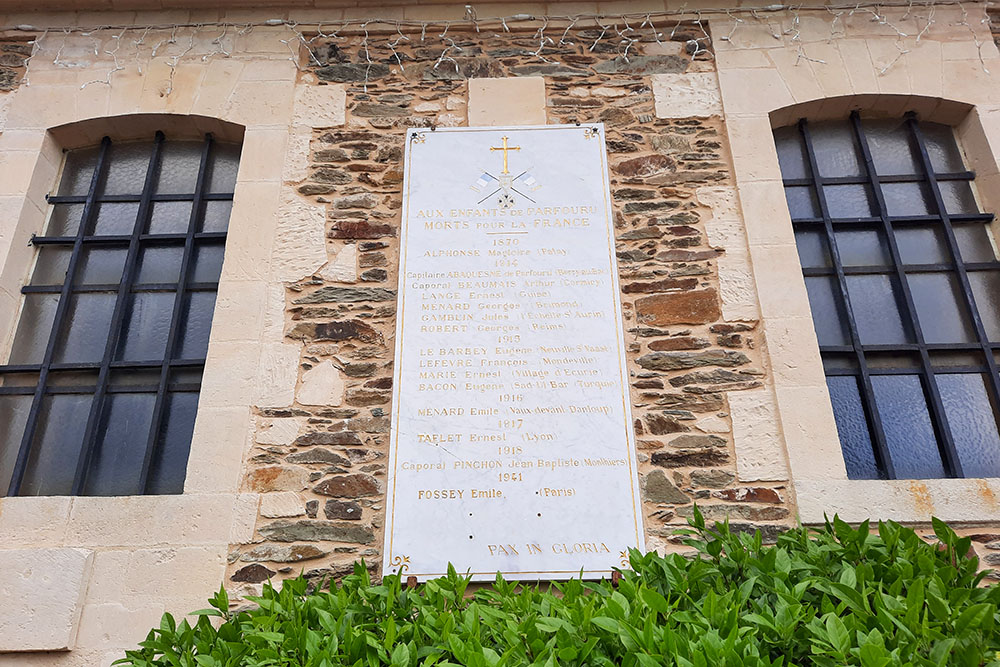 AUX ENFANTS DE PARFOURU
MORTS POUR LA FRANCE
1870
ALPHONSE Magloire (Patay)
1914
Capitaine ABAQUESNE de Parfouru (Berry au Bac)
Caporal BEAUMAIS Arthur
LANGE Ernest (Guise)
MENARD Georges
GAMBLIN Jules (L'Echelle St Aurin)
ROBERT Georges (Reims)
1915
LE BARBEY Eugène (Neuville St Vaast)
LEFEVRE François (Mondeville)
MARIE Ernest (Village d'Ecurie)
BACON Eugène (Sad-Ul Bar Turquie)
1916
MENARD Emile (Vaux-devant Damloup)
1917
TAFLET Ernest (Lyon)
1918
Caporal PINCHON Jean Baptiste (Monthiers)
1941
FOSSEY Emile, (Paris)
PAX IN GLORIA